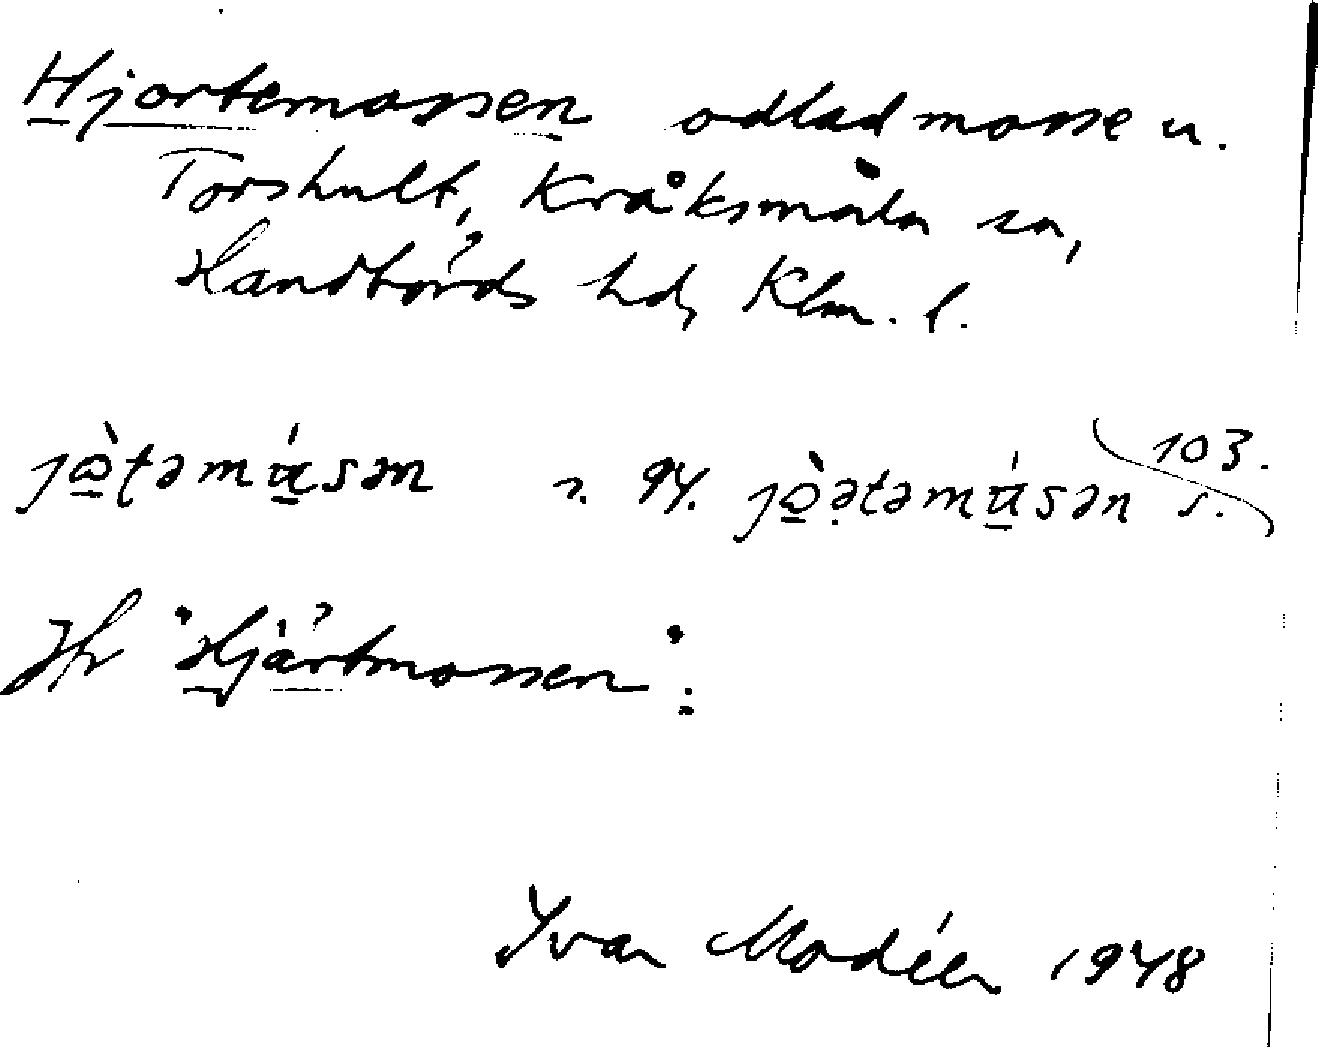 Hjortemossen odlad mosse u.
Torshult, Kråksmåla sn,
Handbörds hd, Klm. l.
jò̱təmú̱sən s. 94. jò̱ətəmú̱sən s. 103.
Hr "Hjärtmossen".
Ivar Modéer 1948